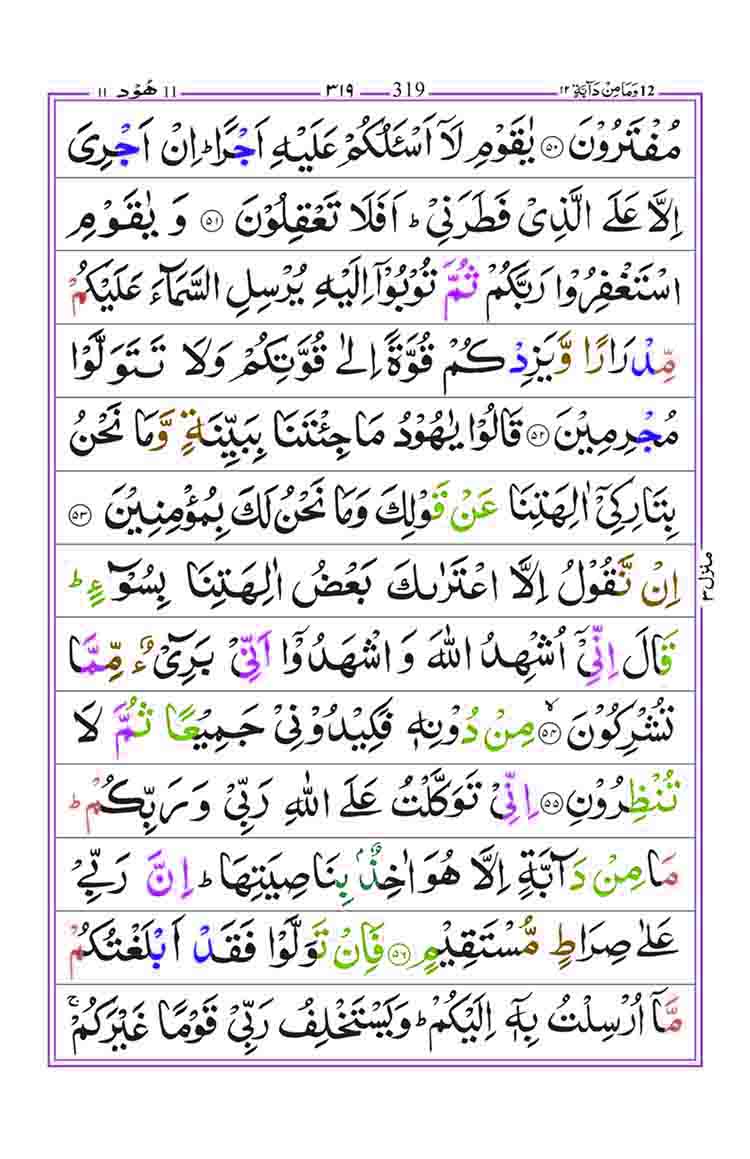 12 وَمَا مِنْ دَآبَّةٍ ١٢ 319 ٣١٩ 11 هُوْد ١١
مُفْتَرُوْنَ ۝٥٠ يٰقَوْمِ لَاۤ اَسْـَٔلُكُمْ عَلَيْهِ اَجْرًا ؕ اِنْ اَجْرِىَ
اِلَّا عَلَى الَّذِىْ فَطَرَنِىْ ؕ اَفَلَا تَعْقِلُوْنَ ۝٥١ وَ يٰقَوْمِ
اسْتَغْفِرُوْا رَبَّكُمْ ثُمَّ تُوْبُوْۤا اِلَيْهِ يُرْسِلِ السَّمَآءَ عَلَيْكُمْ
مِّدْرَارًا وَّيَزِدْكُمْ قُوَّةً اِلٰى قُوَّتِكُمْ وَلَا تَتَوَلَّوْا
مُجْرِمِيْنَ ۝٥٢ قَالُوْا يٰهُوْدُ مَا جِئْتَنَا بِبَيِّنَةٍ وَّمَا نَحْنُ
بِتَارِكِىْۤ اٰلِهَتِنَا عَنْ قَوْلِكَ وَمَا نَحْنُ لَكَ بِمُؤْمِنِيْنَ ۝٥٣
اِنْ نَّقُوْلُ اِلَّا اعْتَرٰىكَ بَعْضُ اٰلِهَتِنَا بِسُوْٓءٍ ؕ
قَالَ اِنِّىْۤ اُشْهِدُ اللّٰهَ وَ اشْهَدُوْۤا اَنِّىْ بَرِىْٓءٌ مِّمَّا
تُشْرِكُوْنَ ۝٥٤ۙ مِنْ دُوْنِهٖ فَكِيْدُوْنِىْ جَمِيْعًا ثُمَّ لَا
تُنْظِرُوْنِ ۝٥٥ اِنِّىْ تَوَكَّلْتُ عَلَى اللّٰهِ رَبِّىْ وَرَبِّكُمْ ؕ
مَا مِنْ دَآبَّةٍ اِلَّا هُوَ اٰخِذٌۢ بِنَاصِيَتِهَا ؕ اِنَّ رَبِّىْ
عَلٰى صِرَاطٍ مُّسْتَقِيْمٍ ۝٥٦ فَاِنْ تَوَلَّوْا فَقَدْ اَبْلَغْتُكُمْ
مَّاۤ اُرْسِلْتُ بِهٖۤ اِلَيْكُمْ ؕ وَيَسْتَخْلِفُ رَبِّىْ قَوْمًا غَيْرَكُمْ ۚ
منزل ٣